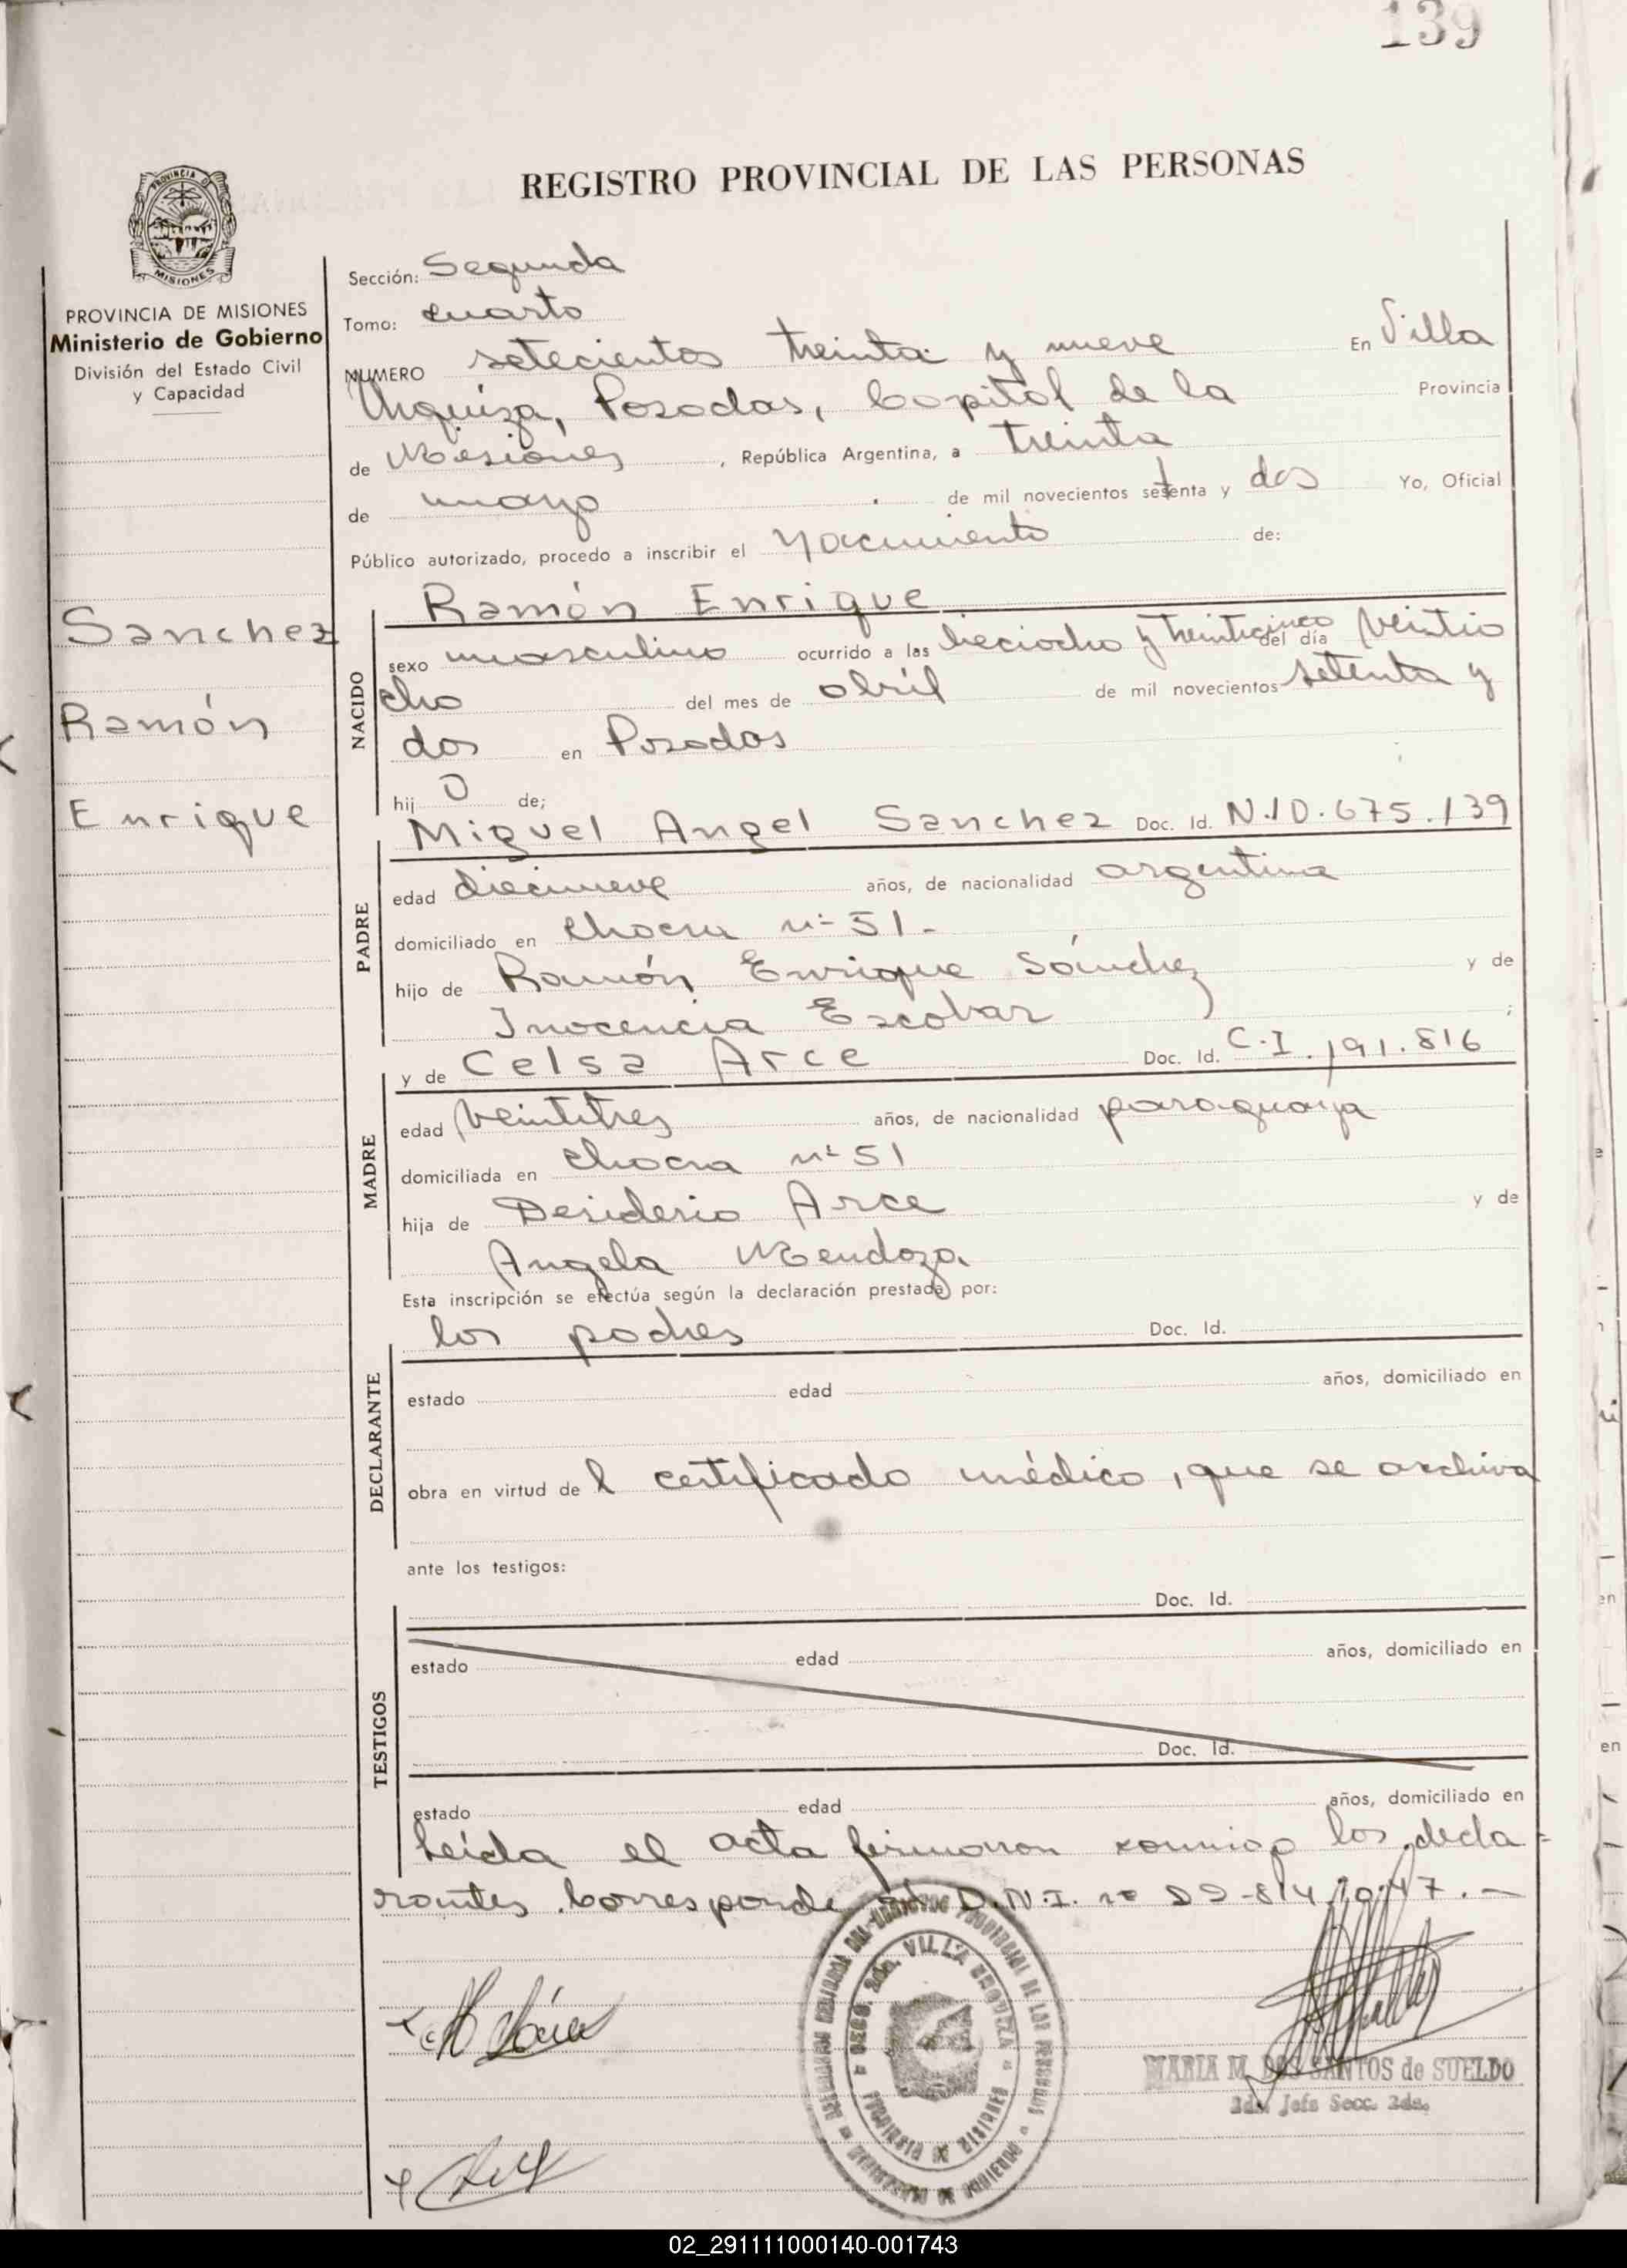 139
REGISTRO PROVINCIAL DE LAS PERSONAS
PROVINCIA DE MISIONES
Ministerio de Gobierno
División del Estado Civil
y Capacidad
Sanchez
Ramón
Enrique
Sección: Segunda
Tomo: cuarto
NUMERO setecientos treinta y nueve En Villa
Urquiza, Posadas, Capital de la Provincia
de Misiones, República Argentina, a treinta
de mayo de mil novecientos setenta y dos Yo, Oficial
Público autorizado, procedo a inscribir el nacimiento de:
NACIDO
Ramón Enrique
sexo masculino ocurrido a las dieciocho y treinticinco del día veintio
cho del mes de abril de mil novecientos setenta y
dos en Posadas
hijo de;
PADRE
Miguel Angel Sanchez Doc. Id. N.10.675.139
edad diecinueve años, de nacionalidad argentina
domiciliado en chacra nº 51-
hijo de Ramón Enrique Sánchez y de
Inocencia Escobar ;
MADRE
y de Celsa Arce Doc. Id. C.I. 191.816
edad veintitres años, de nacionalidad paraguaya
domiciliada en chacra nº 51
hija de Desiderio Arce y de
Angela Mendoza.
Esta inscripción se efectúa según la declaración prestada por:
DECLARANTE
los padres Doc. Id.
estado edad años, domiciliado en
obra en virtud del certificado médico, que se archiva
ante los testigos:
TESTIGOS
Doc. Id.
estado edad años, domiciliado en
Doc. Id.
estado edad años, domiciliado en
Leída el acta firmaron conmigo los decla=
rantes. Corresponde D.N.I. nº
VILLA URQUIZA
MARIA M. DOS SANTOS de SUELDO
Jefa Secc. 2da.
02_291111000140-001743